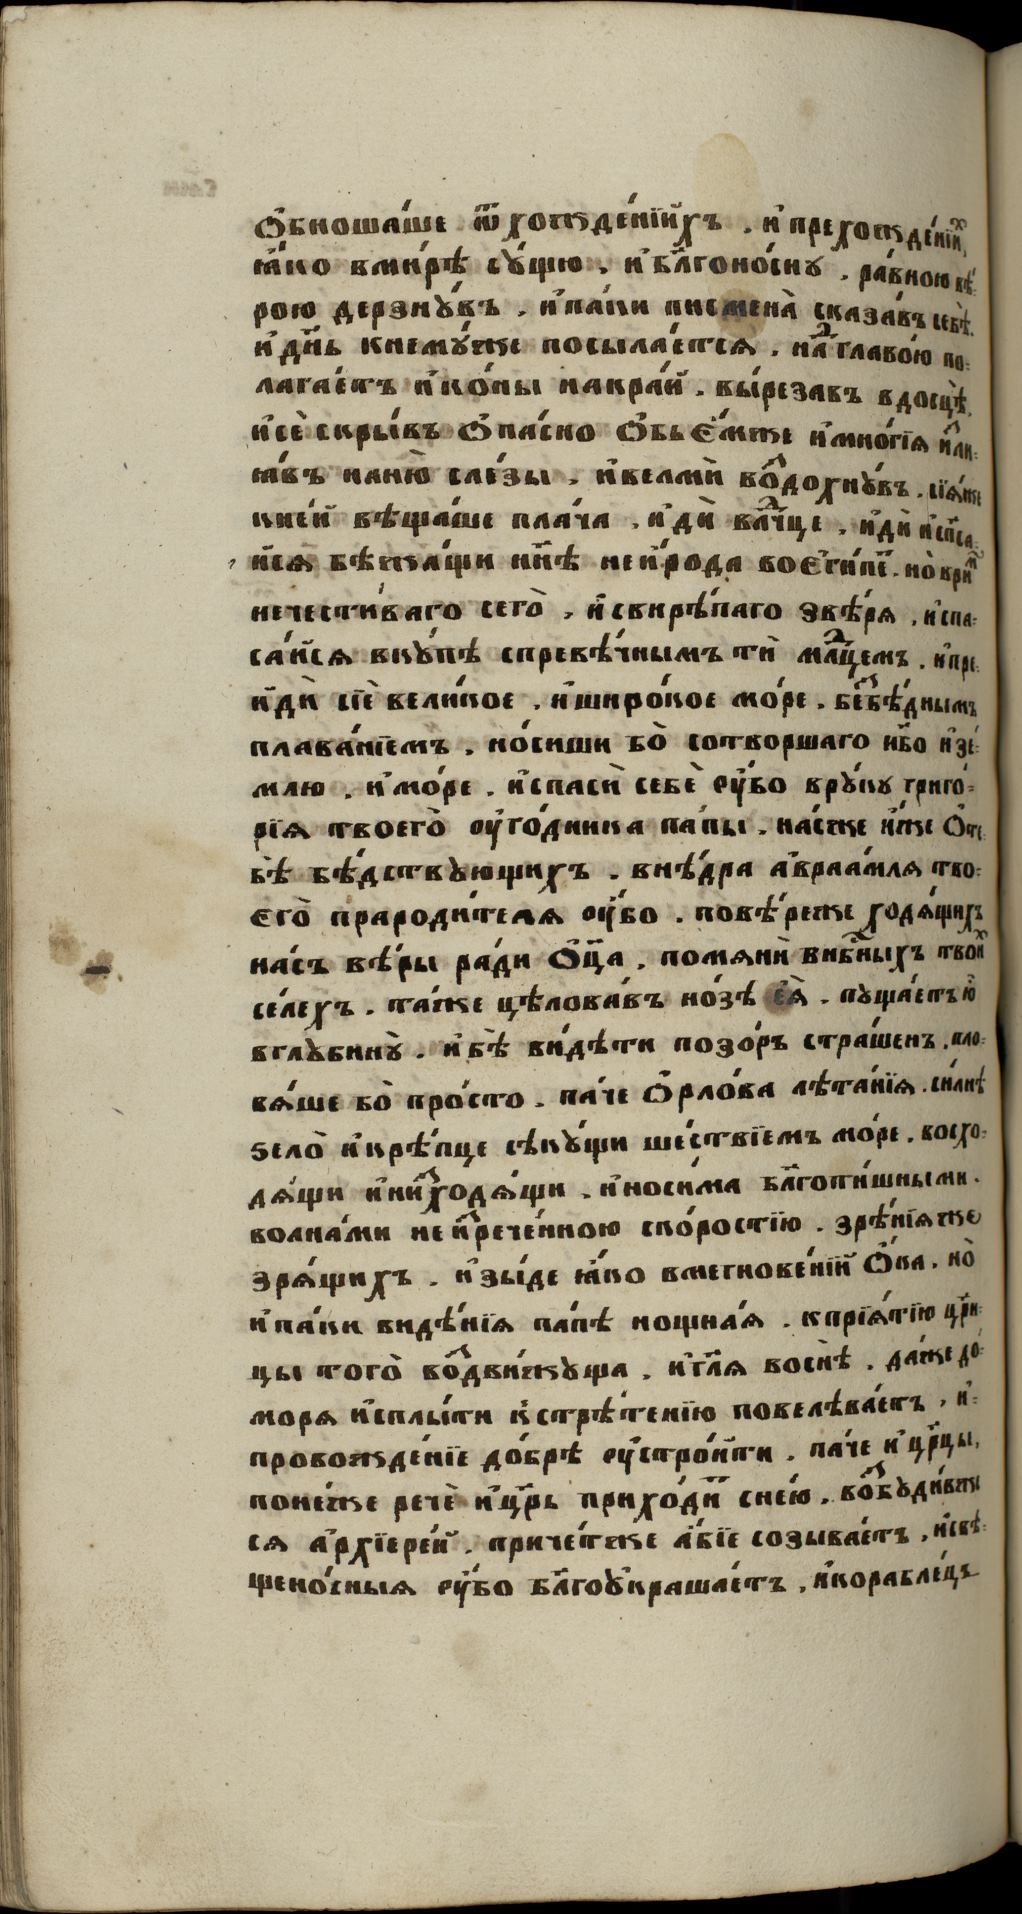 Ѻ҆бноша́ше ѿхожде́нїихъ . и҆прехожде́нїих
ꙗ҆́ко вми́рѣ сꙋ́щю . и҆бл҃гоно́снꙋ . ра́вною вѣ́-
рою дерзнꙋ́въ . и҆па́ки писмена̀ сказа́въ себѣ̀.
и҆дн҃ь кнемꙋ́же посыла́етсѧ . на́дглаво́ю по-
лага́етъ и҆ко́ны накра́й . вы́резавъ вдосцѣ̀.
и҆сѐ скры́въ Ѻ҆па́сно Ѻ҆бье́мже и҆мно́гїѧ и҆зли-
ꙗ́въ наню̀ сле́зы . и҆велмѝ воздохнꙋ́въ . сїѧ́же
кне́й вѣща́ше пла́ча . и҆дѝ влⷣчце . и҆дѝ и҆спⷭ҇са-
йсѧ бѣжа́щи нн҃ѣ неи҆́рода воЄ҆ги́пт . но̀ врим
нечести́ваго сего̀ . и҆свирѣ́паго звѣ́рѧ . и҆спа-
са́йсѧ вкꙋ́пѣ спревѣ́чнымъ тѝ млⷣцемъ . и҆пре-
и҆дѝ сїѐ вели́кое . и҆широ́кое мо́ре . безбѣ́днымъ
плава́нїемъ . но́сиши бо̀ сотворшаго нб҃о и҆зе́-
млю . и҆мо́ре . и҆спасѝ себѐ ᲂу҆́бо врꙋ́кꙋ григо́-
рїѧ твоего̀ ᲂу҆го́дника па́пы . на́сже и҆́же Ѻ҆те-
бѣ̀ бѣ́дствꙋющихъ . внѣ́дра а҆враа́млѧ тво-
Є҆го̀ прароди́телѧ ᲂу҆́бо . повѣ́реже ходѧ́щихъ
на́съ вѣ́ры ра́ди Ѻ҆ц҃а . помѧнѝ внбⷭ҇ныхъ твоих
се́лехъ . та́же цѣлова́въ но́зѣ еѧ̀ . пꙋща́етъ ю҆̀
вглꙋбинꙋ̀ . и҆бѣ̀ ви́дѣти позо́ръ стра́шенъ . пло-
вѧ́ше бо̀ про́сто . па́че Ѻ҆рло́ва лѣта́нїѧ . си́лнѣ
ѕело̀ и҆крѣ́пце сѣкꙋ́щи ше́ствїемъ мо́ре . восхо-
дѧ́щи и҆низходѧ́щи . и҆носи́ма бл҃готи́шными .
волна́ми неи҆зрече́нною ско́ростїю . зрѣ́нїѧже
зрѧ́щихъ . и҆зы́де ꙗ҆́ко вмегнове́нїи Ѻ҆́ка . но̀
и҆па́ки видѣ́нїѧ па́пѣ нощна́ѧ . кпрїѧ́тїю црⷭ҇и-
цы того̀ воздви́жꙋща . и҆гл҃ѧ воснѣ̀ . да́же до-
морѧ и҆сплы́ти кстрѣ́тенїю повелѣва́етъ . и҆-
провожде́нїе до́брѣ ᲂу҆стро́ити . па́че и҆цр҃цы,
поне́же речѐ и҆цр҃ь прихо́дит сне́ю . возбꙋди́вже
сѧ а҆рхїере́й . приче́тже а҆́бїе созыва́етъ . и҆свѣ-
щено́сныѧ ᲂу҆́бо бл҃гоꙋкраша́етъ . и҆корабле́цъ